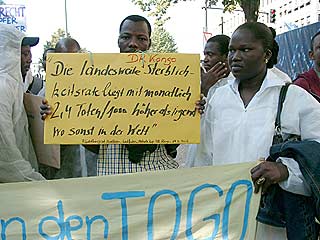 RECHT
DR Kongo
"Die landesweite Sterblich-
keitsrate liegt mit monatlich
2,4 Toten/1000 höher als irgend
wo sonst in der Welt"
n den TOGO